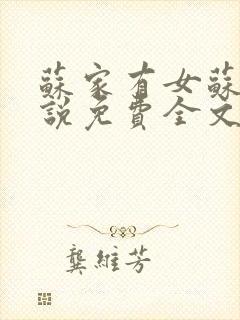 蘇家有女蘇
說免費全文
龔維芳